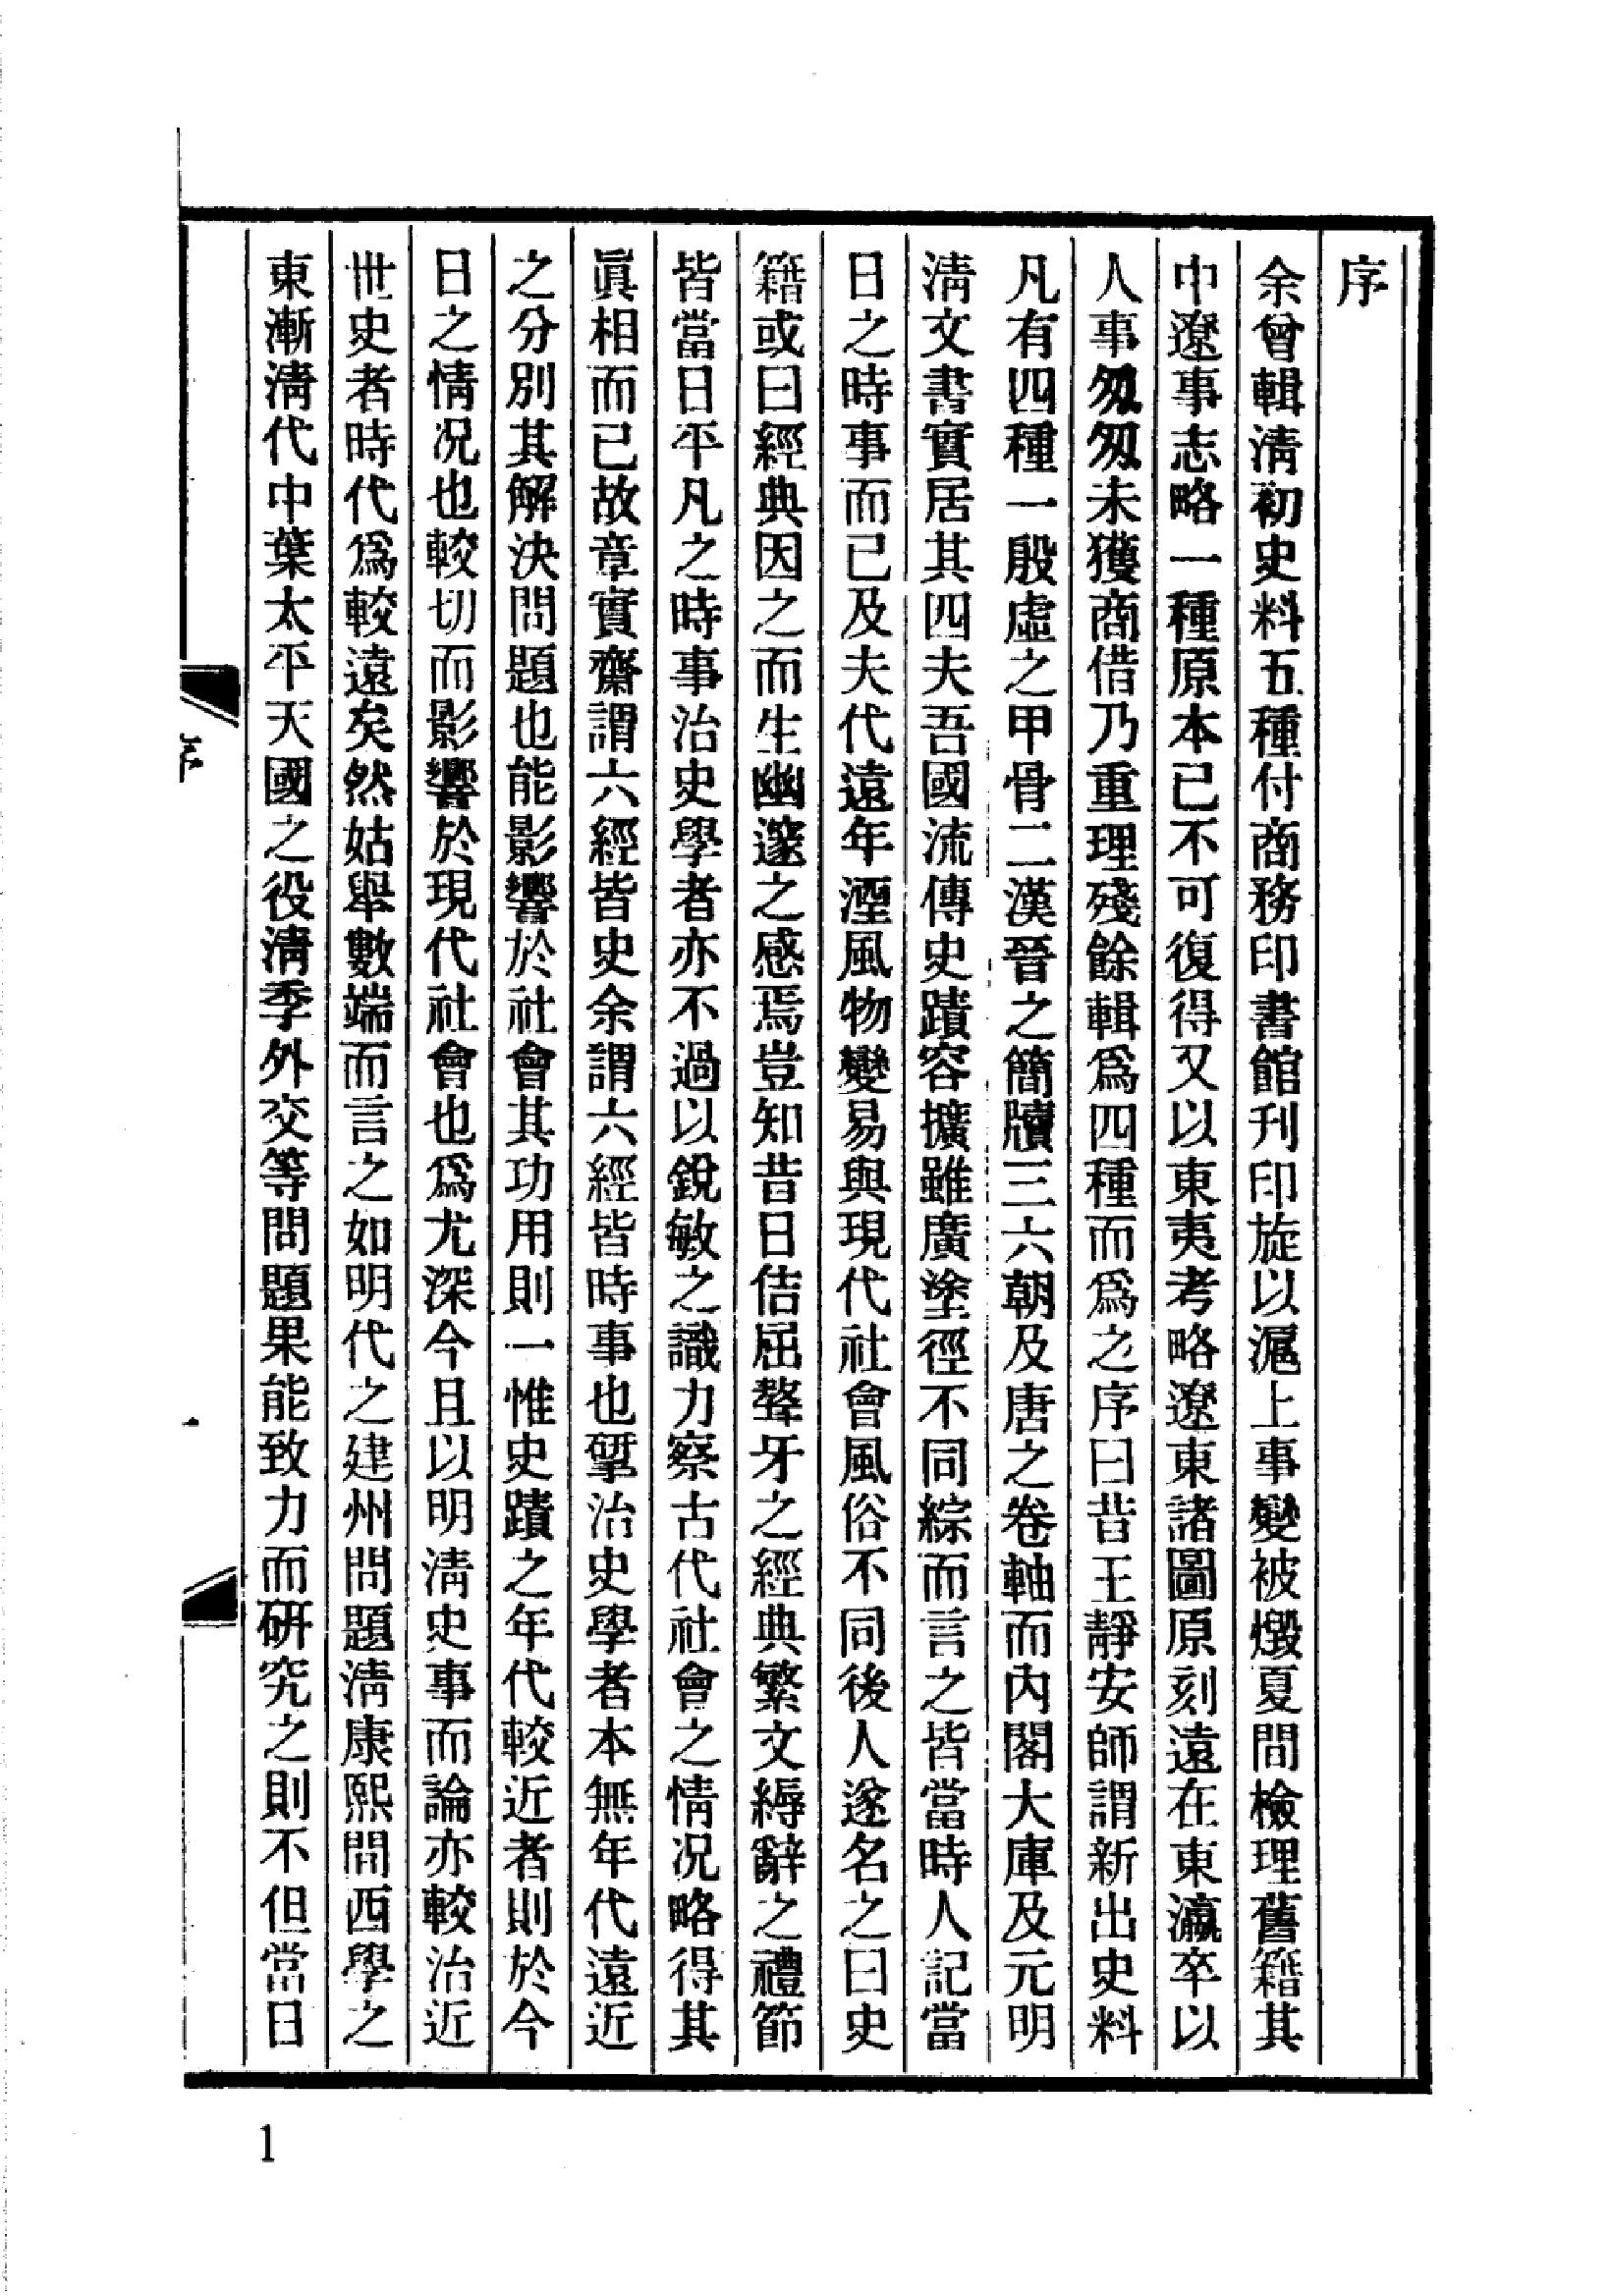 序
余曾輯淸初史料五種付商務印書館刊印旋以滬上事變被燬夏間檢理舊籍其
中遼事志略一種原本已不可復得又以東夷考略遼東諸圖原刻遠在東瀛卒以
人事匆匆未獲商借乃重理殘餘輯爲四種而爲之序曰昔王靜安師謂新出史料
凡有四種一殷虛之甲骨二漢晉之簡牘三六朝及唐之卷軸而內閣大庫及元明
淸文書實居其四夫吾國流傳史蹟容擴雖廣塗徑不同綜而言之皆當時人記當
日之時事而已及夫代遠年湮風物變易與現代社會風俗不同後人遂名之曰史
籍或曰經典因之而生幽邃之感焉豈知昔日佶屈聱牙之經典繁文縟辭之禮節
皆當日平凡之時事治史學者亦不過以銳敏之識力察古代社會之情况略得其
眞相而已故章實齋謂六經皆史余謂六經皆時事也揅治史學者本無年代遠近
之分別其解決問題也能影響於社會其功用則一惟史蹟之年代較近者則於今
日之情况也較切而影響於現代社會也爲尤深今且以明淸史事而論亦較治近
世史者時代爲較遠矣然姑舉數端而言之如明代之建州問題淸康熙間西學之
東漸淸代中葉太平天國之役淸季外交等問題果能致力而研究之則不但當日
序
一
1